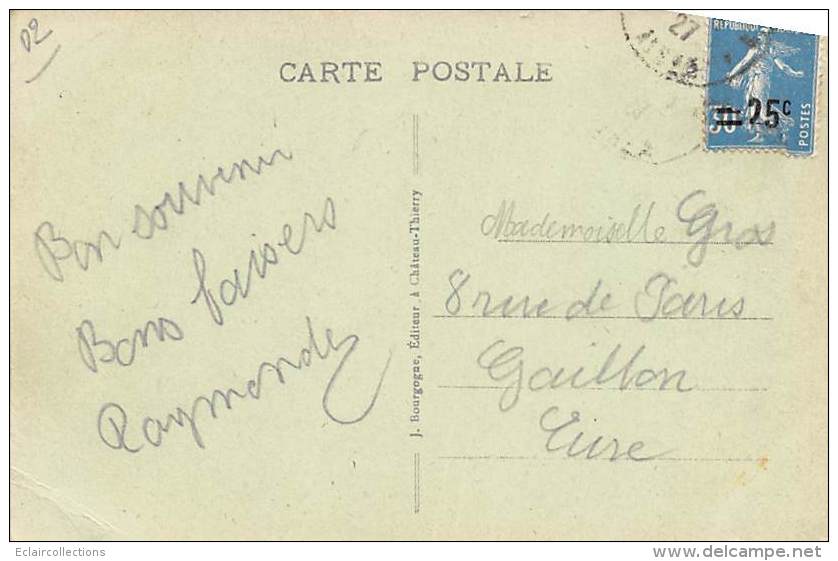 02
CARTE POSTALE
27
REPUBLIQUE
30
25c
POSTES
Bon souvenir
Bons baisers
Raymonde
J. Bourgogne, Éditeur à Château-Thierry
Mademoiselle Gros
8 rue de Paris
Gaillon
Eure
Eclaircollections
www.delcampe.net